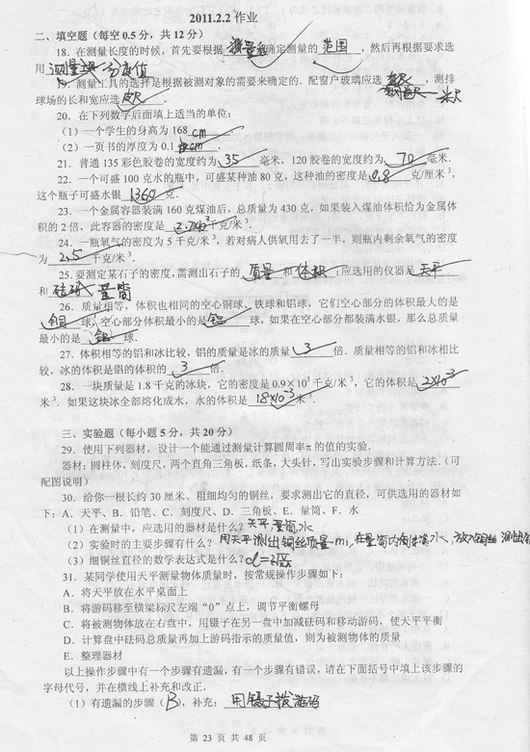 2011.2.2 作业
二、填空题（每空 0.5 分，共 12 分）
18. 在测量长度的时候，首先要根据 测量 确定测量的 范围 ，然后再根据要求选
用 测量 分度值
19. 测量工具的选择是根据被测对象的需要来确定的．配窗户玻璃应选 ，测排
球场的长和宽应选 皮尺 ． 米尺
20. 在下列数字后面填上适当的单位：
（1）一个学生的身高为 168 cm ．
（2）一页书的厚度为 0.1 cm ．
21. 普通 135 彩色胶卷的宽度约为 35 毫米，120 胶卷的宽度约为 70 毫米．
22. 一个可盛 100 克水的瓶中，可盛某种油 80 克，这种油的密度是 0.8 克/厘米³，
这个瓶子可盛水银 1360 克．
23. 一个金属容器装满 160 克煤油后，总质量为 430 克，如果装入煤油体积恰为金属体
积的 2 倍，此容器的密度是 千克/米³．
24. 一瓶氧气的密度为 5 千克/米³，若对病人供氧用去了一半，则瓶内剩余氧气的密度
为 2.5 千克/米³．
25. 要测定某石子的密度，需测出石子的 质量 和 体积 ；应选用的仪器是 天平
和 砝码 量筒
26. 质量相等，体积也相同的空心铜球、铁球和铝球，它们空心部分的体积最大的是
铜 球，空心部分体积最小的是 铝 球，如果在空心部分都装满水银，那么总质量
最小的是 铝 球．
27. 体积相等的铝和冰比较，铝的质量是冰的质量 3 倍．质量相等的铝和冰相比
较，冰的体积是铝的体积的 3 倍．
28. 一块质量是 1.8 千克的冰块，它的密度是 0.9×10³ 千克/米³，它的体积是 2×10⁻³
米³．如果这块冰全部熔化成水，水的体积是 1.8×10⁻³ 米³．
三、实验题（每小题 5 分，共 20 分）
29. 使用下列器材，设计一个能通过测量计算圆周率π的值的实验．
器材：圆柱体，刻度尺，两个直角三角板，纸条，大头针，写出实验步骤和计算方法．（可
配图说明）
30. 给你一根长约 30 厘米、粗细均匀的铜丝，要求测出它的直径，可供选用的器材如
下：A．天平、B．铅笔、C．刻度尺、D．三角板、E．量筒、F．水
（1）在测量中，应选用的器材是什么？ 天平 量筒 水
（2）实验时的主要步骤有什么？ 用天平测出铜丝质量m，在量筒内倒 水，放入铜丝
（3）细铜丝直径的数学表达式是什么？ d=
31. 某同学使用天平测量物体质量时，按常规操作步骤如下：
A．将天平放在水平桌面上
B．将游码移至横梁标尺左端“0”点上，调节平衡螺母
C．将被测物体放在右盘中，用镊子在另一盘中加减砝码和移动游码，使天平平衡
D．计算盘中砝码总质量再加上游码指示的质量值，则为被测物体的质量
E．整理器材
以上操作步骤中有一个步骤有遗漏，有一个步骤有错误，请在下面括号中填上该步骤的
字母代号，并在横线上补充和改正．
（1）有遗漏的步骤（B），补充： 用镊子拨游码
第 23 页 共 48 页